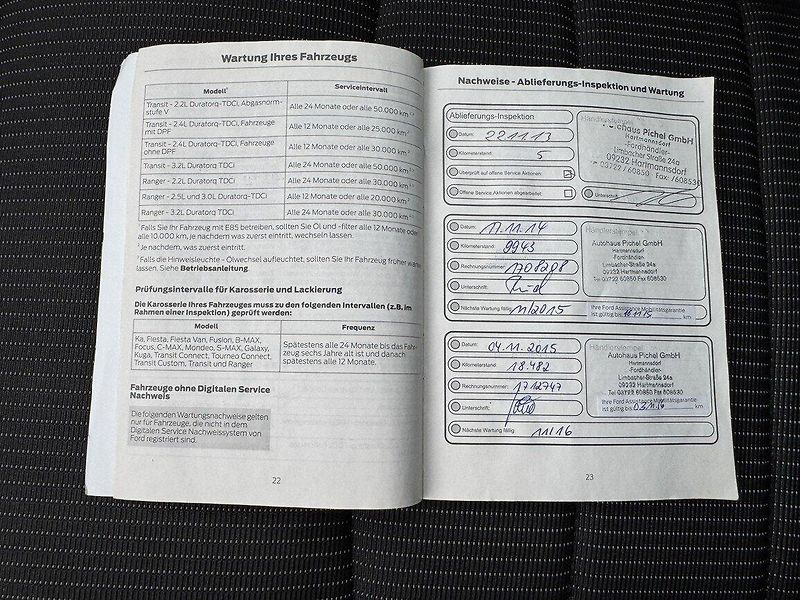 Wartung Ihres Fahrzeugs
Modell¹ Serviceintervall
Transit - 2.2L Duratorq-TDCi, Abgasnorm-
stufe V Alle 24 Monate oder alle 50.000 km
Transit - 2.4L Duratorq-TDCi, Fahrzeuge
mit DPF Alle 12 Monate oder alle 25.000 km
Transit - 2.4L Duratorq-TDCi, Fahrzeuge
ohne DPF Alle 12 Monate oder alle 30.000 km
Transit - 3.2L Duratorq TDCi Alle 24 Monate oder alle 50.000 km
Ranger - 2.2L Duratorq TDCi Alle 24 Monate oder alle 30.000 km
Ranger - 2.5L und 3.0L Duratorq-TDCi Alle 12 Monate oder alle 20.000 km
Ranger - 3.2L Duratorq TDCi Alle 24 Monate oder alle 30.000 km
Falls Sie Ihr Fahrzeug mit E85 betreiben, sollten Sie Öl und -filter alle 12 Monate oder
alle 10.000 km, je nachdem was zuerst eintritt, wechseln lassen.
² Je nachdem, was zuerst eintritt.
³ Falls die Hinweisleuchte - Ölwechsel aufleuchtet, sollten Sie Ihr Fahrzeug früher warten
lassen. Siehe Betriebsanleitung.
Prüfungsintervalle für Karosserie und Lackierung
Die Karosserie Ihres Fahrzeuges muss zu den folgenden Intervallen (z.B. im
Rahmen einer Inspektion) geprüft werden:
Modell Frequenz
Ka, Fiesta, Fiesta Van, Fusion, B-MAX,
Focus, C-MAX, Mondeo, S-MAX, Galaxy,
Kuga, Transit Connect, Tourneo Connect,
Transit Custom, Transit und Ranger
Spätestens alle 24 Monate bis das Fahr-
zeug sechs Jahre alt ist und danach
spätestens alle 12 Monate.
Fahrzeuge ohne Digitalen Service
Nachweis
Die folgenden Wartungsnachweise gelten
nur für Fahrzeuge, die nicht in dem
Digitalen Service Nachweissystem von
Ford registriert sind.
22
Nachweise - Ablieferungs-Inspektion und Wartung
Ablieferungs-Inspektion
Datum: 22.11.13
Kilometerstand: 5
Überprüft auf offene Service Aktionen:
Offene Service Aktionen abgearbeitet:
Händlerstempel
Autohaus Pichel GmbH
Hartmannsdorf
-Fordhändler-
Limbacher Straße 24a
09232 Hartmannsdorf
03722 / 60850 Fax: /608530
Unterschrift:
Datum: 17.11.14
Kilometerstand: 9943
Rechnungsnummer: 1708298
Unterschrift:
Nächste Wartung fällig: 11/2015
Händlerstempel
Autohaus Pichel GmbH
Hartmannsdorf
-Fordhändler-
Limbacher-Straße 24a
09232 Hartmannsdorf
Tel 03722 60850 Fax 608530
Ihre Ford Assistance Mobilitätsgarantie
ist gültig bis km
Datum: 04.11.2015
Kilometerstand: 18.482
Rechnungsnummer: 1712747
Unterschrift:
Nächste Wartung fällig: 11/16
Händlerstempel
Autohaus Pichel GmbH
Hartmannsdorf
-Fordhändler-
Limbacher-Straße 24a
09232 Hartmannsdorf
Tel 03722 60850 Fax 608530
Ihre Ford Assistance Mobilitätsgarantie
ist gültig bis 03.11.16 km
23